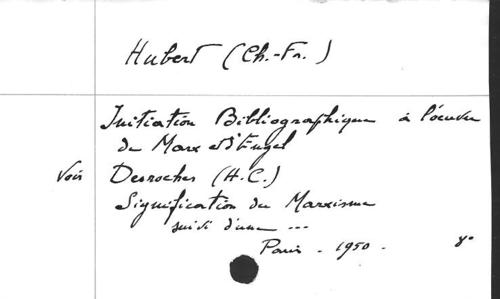 Hubert (Ch.-Fr.)
Initiation Bibliographique à l'oeuvre
de Marx et d'Engel
Voir Desroches (H.C.)
Signification du Marxisme
suivi d'une ...
Paris - 1950 - 8°